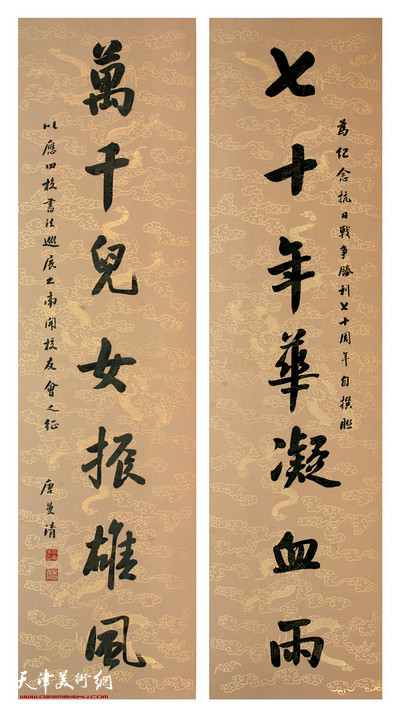 為紀念抗日戰爭勝利七十周年自撰聯
七十年華凝血雨
萬千兒女振雄風
以應四校書法巡展出南開校友會之征
唐曼清
天津美術網